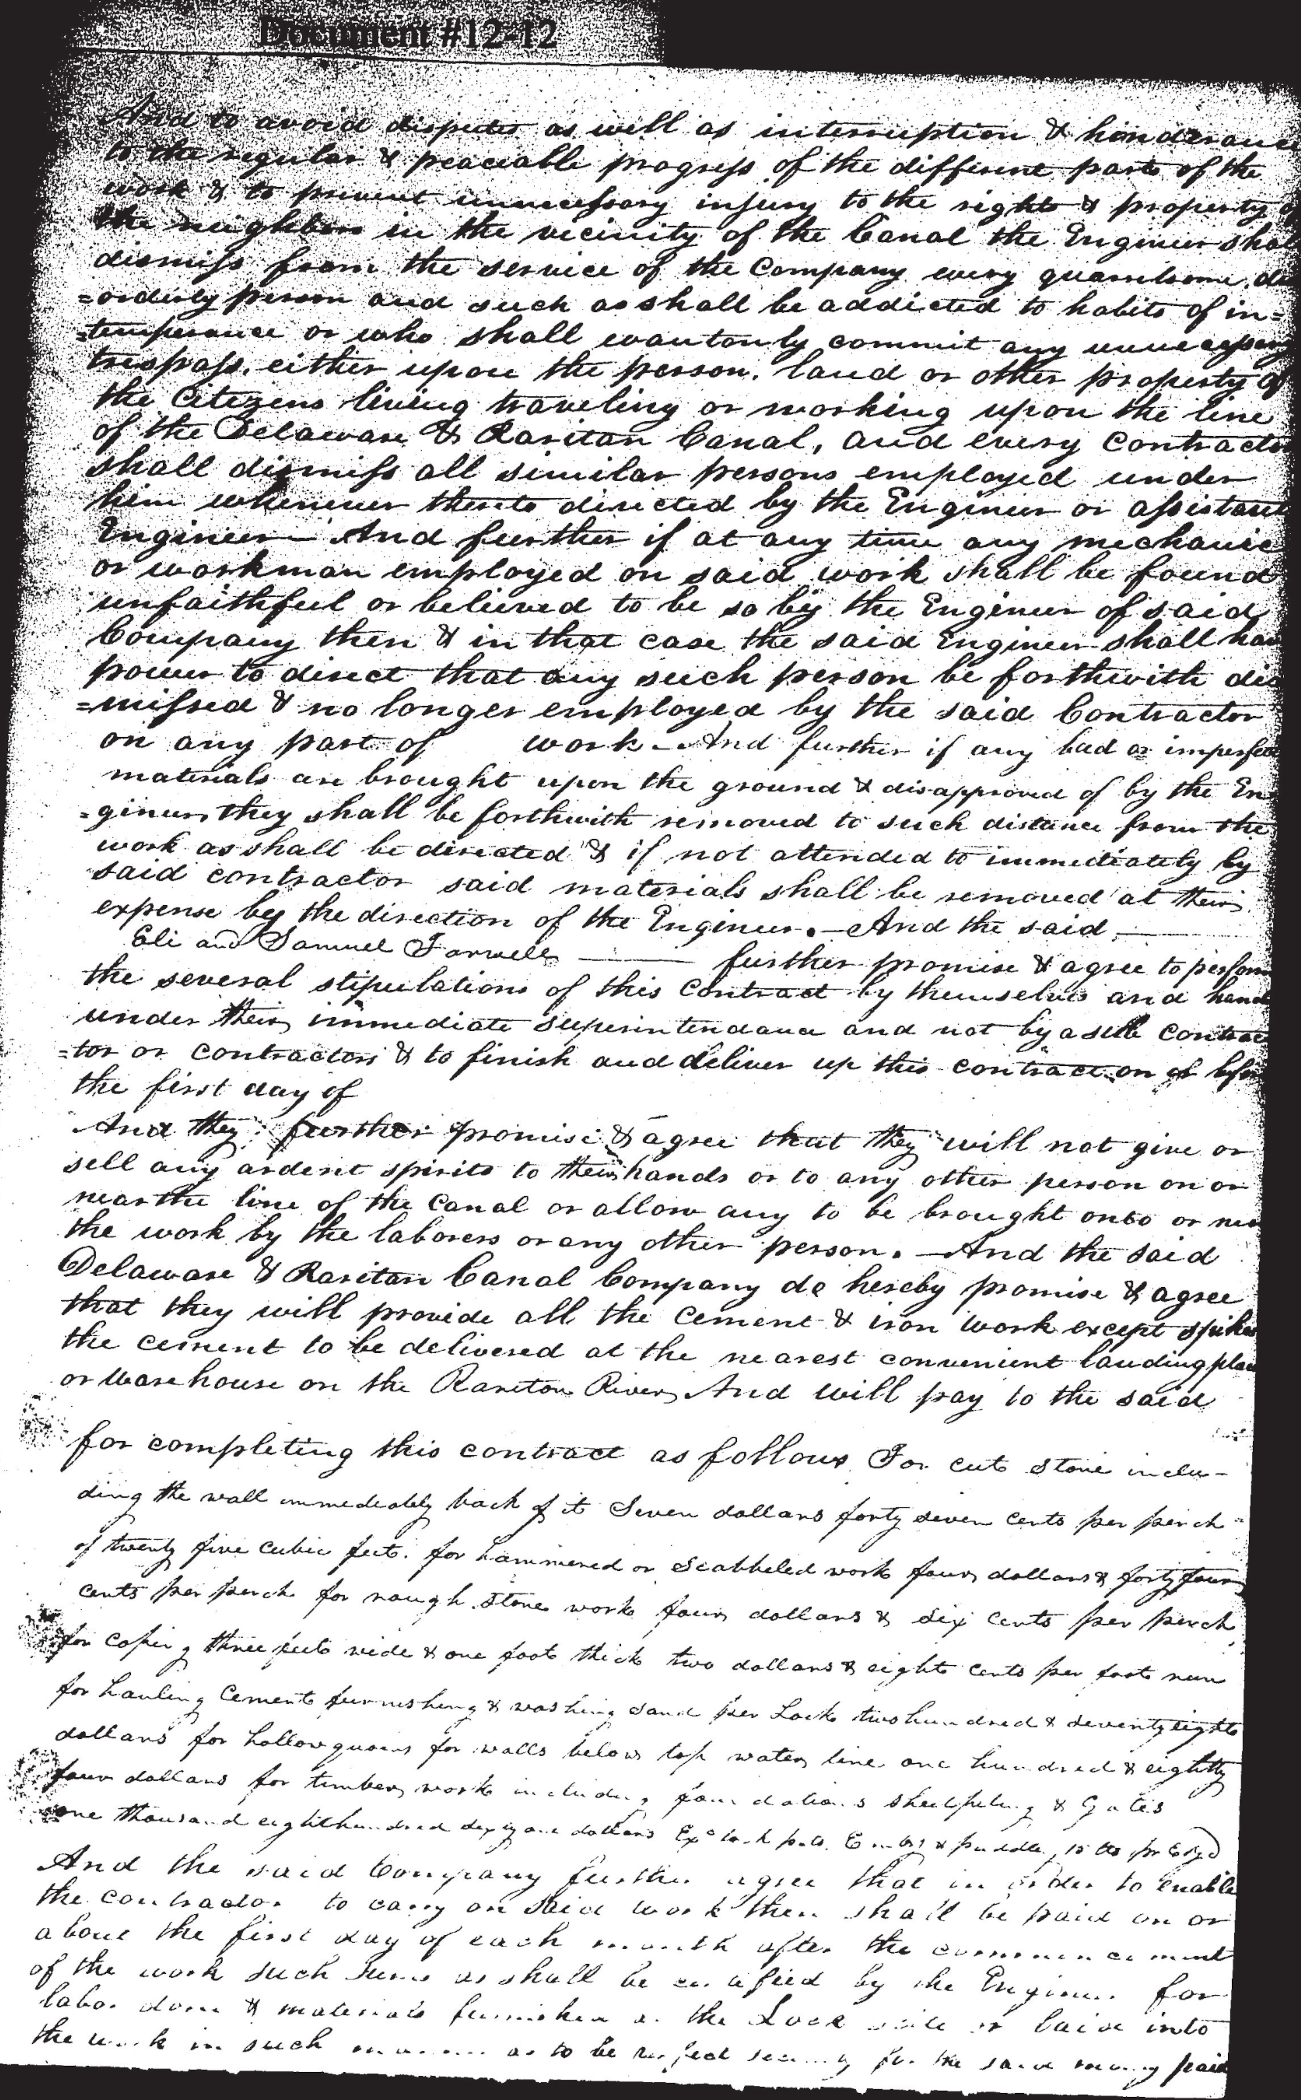 Document #12-12
And to avoid disputes as well as interruption & hinderance
to the regular & peaceable progress of the different parts of the
work & to prevent unnecessary injury to the rights & property of
the neighbors in the vicinity of the Canal the Engineer shall
dismiss from the service of the Company every quarrelsome, dis
=orderly person and such as shall be addicted to habits of in=
=temperance or who shall wantonly commit any unnecessary
trespass, either upon the person, land or other property of
the Citizens living traveling or working upon the line
of the Delaware & Raritan Canal, and every contractor
shall dismiss all similar persons employed under
him whenever thereto directed by the Engineer or assistant
Engineer – And further if at any time any mechanic
or workman employed on said work shall be found
unfaithful or believed to be so by the Engineer of said
Company then & in that case the said Engineer shall have
power to direct that any such person be forthwith dis
=missed & no longer employed by the said Contractor
on any part of work – And further if any bad or imperfect
materials are brought upon the ground & disapproved of by the En
=gineer, they shall be forthwith removed to such distance from the
work as shall be directed & if not attended to immediately by
said contractor said materials shall be removed at their
expense by the direction of the Engineer. – And the said
Eli and Samuel Farwell further promise & agree to perform
the several stipulations of this contract by themselves and hands
under their immediate superintendance and not by a sub contrac
=tor or contractors & to finish and deliver up this contract on or before
the first day of
And they further promise & agree that they will not give or
sell any ardent spirits to their hands or to any other person on or
near the line of the Canal or allow any to be brought onto or near
the work by the laborers or any other person. – And the said
Delaware & Raritan Canal Company do hereby promise & agree
that they will provide all the cement & iron work except spikes
the cement to be delivered at the nearest convenient landing place
or Warehouse on the Rariton River, And will pay to the said
for completing this contract as follows For cut stone inclu-
ding the wall immediately back of it Seven dollars forty seven cents per perch
of twenty five cubic feet. for hammered or Scabbeled work four dollars & forty four
cents per perch for rough stone work four dollars & six cents per perch
for coping three feet wide & one foot thick two dollars & eight cents per foot run
for hauling Cement furnishing & washing sand per Lock two hundred & seventy eight
dollars for hollow quoins for walls below top water line one hundred & eighty
four dollars for timber work including foundations sheetpiling & Gates
one thousand eight hundred sixty one dollars
And the said Company further agree that in order to enable
the contractor to carry on said work there shall be paid on or
about the first day of each month after the commencement
of the work such sums as shall be certified by the Engineer for
labor done & materials furnished at the Lock site or laid into
the work in such manner as to be perfect security for the said money paid